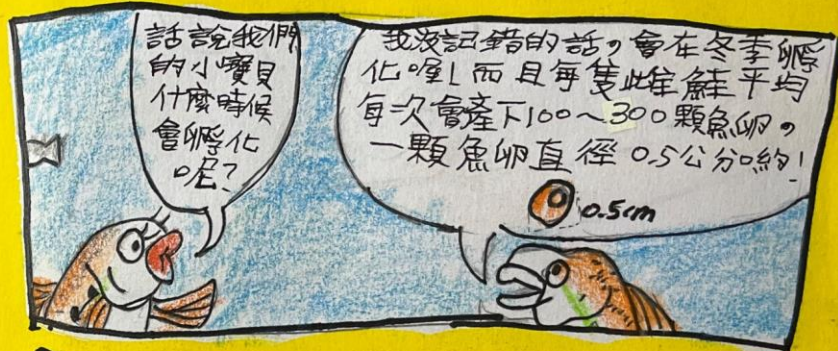 話說我們
的小寶貝
什麼時候
會孵化
呢?
我沒記錯的話,會在冬季孵
化喔!而且每隻雌鮭平均
每次會產下100~300顆魚卵。
一顆魚卵直徑0.5公分喲!
0.5cm